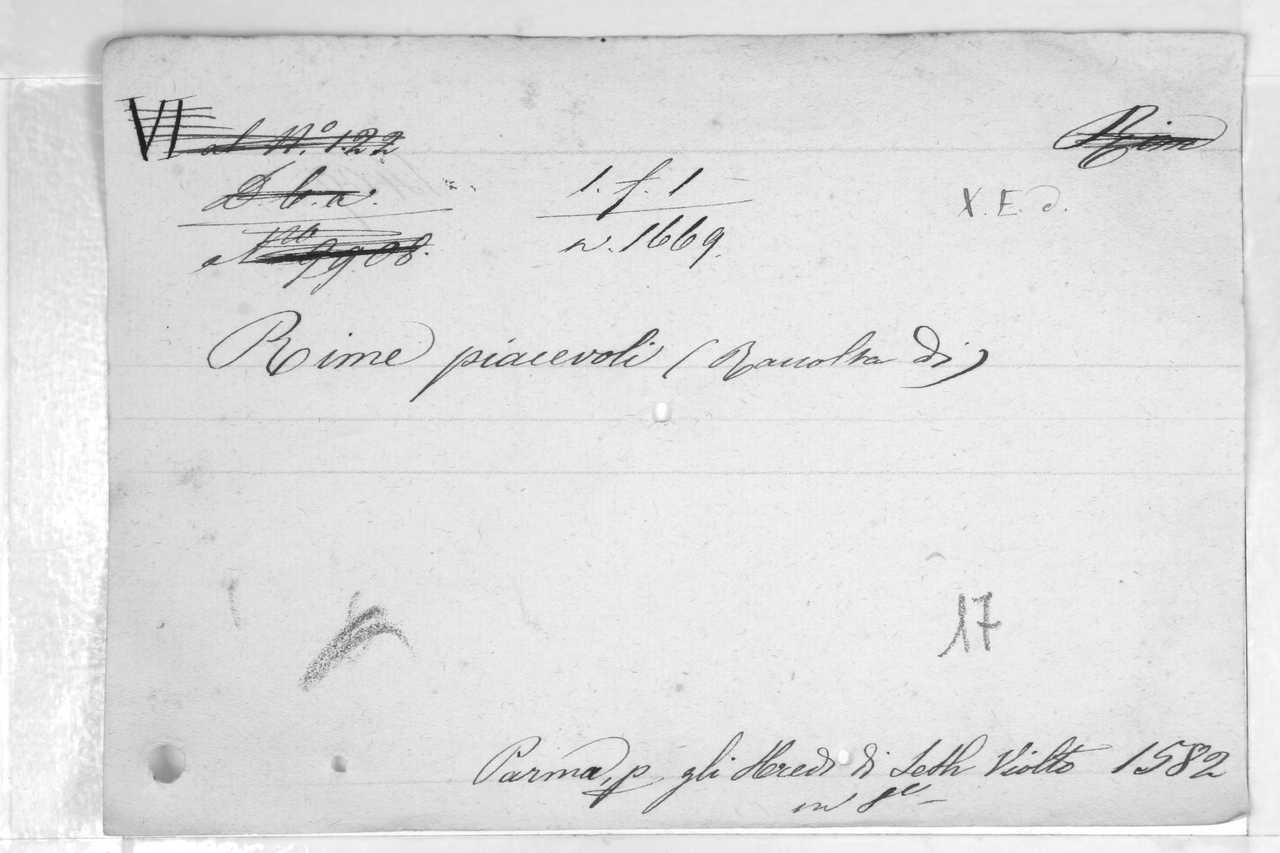 VI al N.º 122 Rim
D b. a. 1. f. 1 X. E. d.
n. 1669.
Rime piacevoli (Raccolta di)
17
Parma, p. gli Heredi di Seth Viotto 1582
in 8º